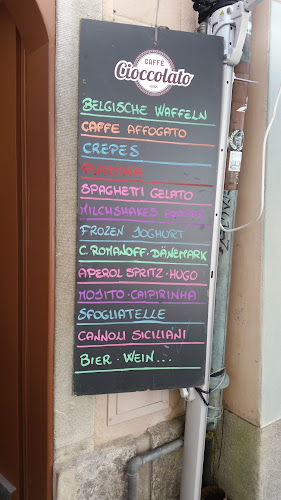 CAFFÈ
Cioccolato
BELGISCHE WAFFELN
CAFFE AFFOGATO
CREPES
PIADINA
SPAGHETTI GELATO
MILCHSHAKES FRAPPÈ
FROZEN JOGHURT
C. ROMANOFF · DÄNEMARK
APEROL SPRITZ · HUGO
MOJITO · CAIPIRINHA
SFOGLIATELLE
CANNOLI SICILIANI
BIER · WEIN...